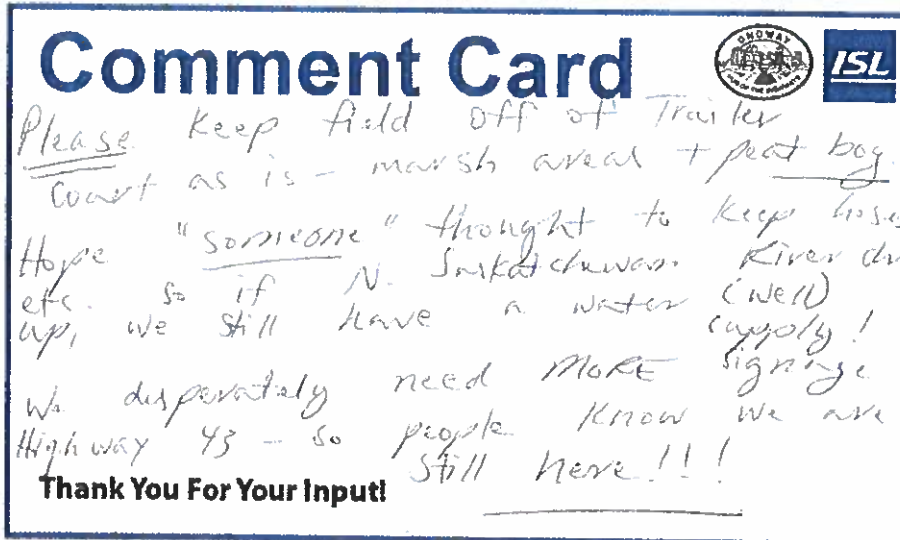 Comment Card
ONOWAY
ISL
Please Keep field off of Trailer
Court as is - marsh areas + peat bog.
Hope "someone" thought to keep hoses
etc. so if N. Saskatchewan River dr
up, we still have a water (well)
supply!
We desperately need MORE signage
Highway 43 - so people know we are
still here!!!
Thank You For Your Input!